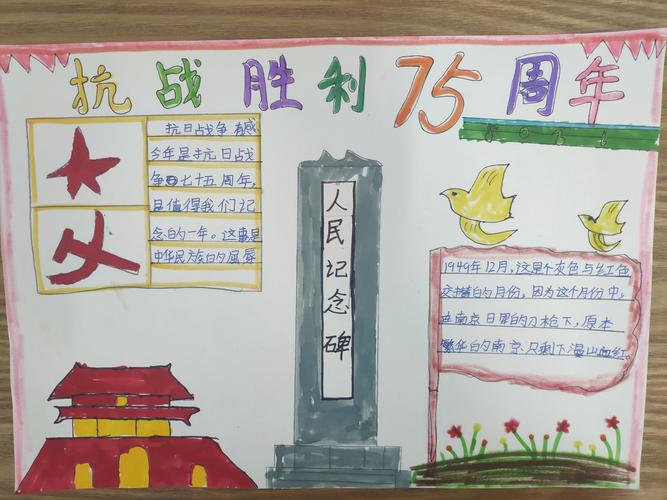 抗战胜利75周年
抗日战争有感
今年是抗日战
争七十五周年,
是值得我们记
念的一年。这事是
中华民族的屈辱
人民记念碑
1949年12月,这是个灰色与红色
交揰的月份,因为这个月份中,
在南京日军的刀枪下,原本
繁华的南京只剩下漫山血红。